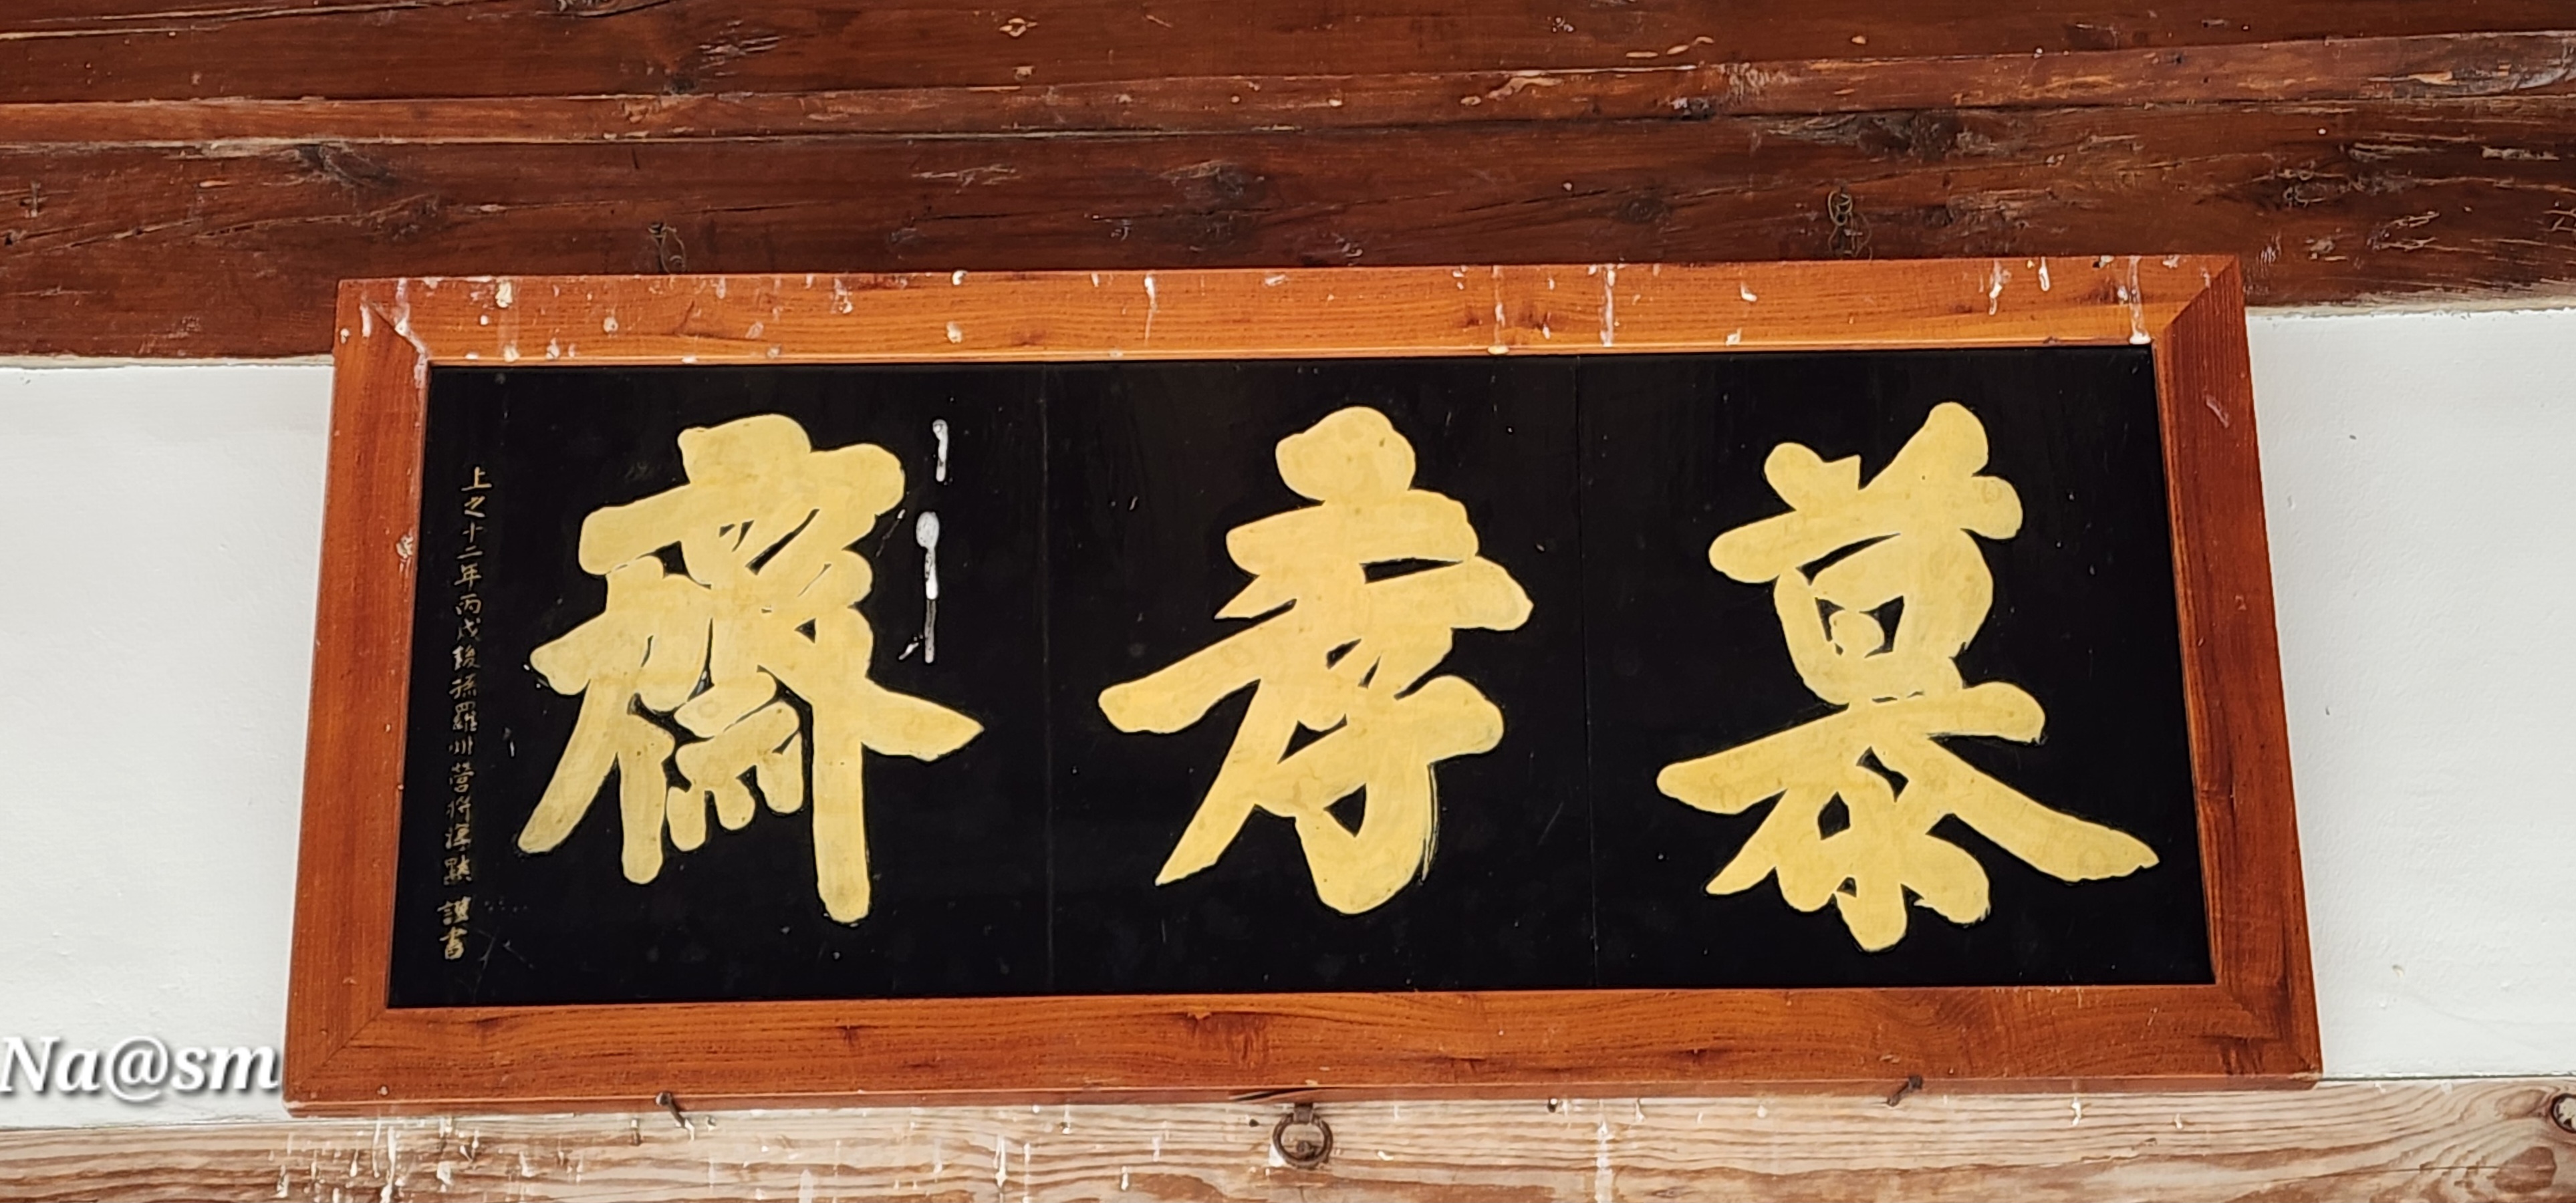 慕孝齋
上之十二年丙戌後孫羅州營將海黙謹書
Na@sm